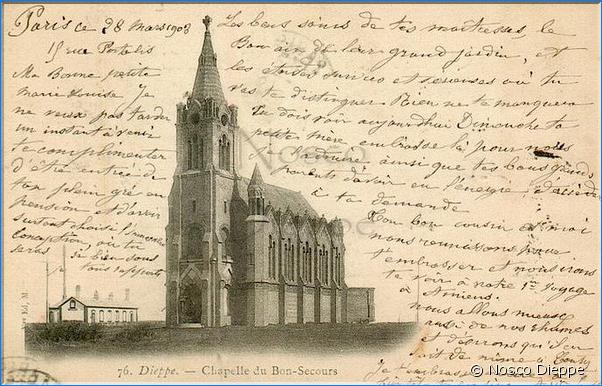 Paris ce 28 mars 1908
15 rue Portalis
Ma Bonne petite
Marie Louise Je
ne veux pas tarder
un instant à venir
te complimenter
d'être entrée de
ton plein gré en
pension et d'avoir
surtout choisi l'
Conception, où tu
seras si bien sous
tous rapports
Les bons soins de tes maîtresses, le
Bon air de leur grand jardin, et
les études suivies et sérieuses où tu
vas te distinguer. Rien ne te manquera
Tu dois voir aujourd'hui Dimanche ta
petite mère embrasse là pour nous
ainsi que tes bons grands
parents d'avoir eu l'énergie d'accéder
à ta demande
Ton bon cousin et moi
nous réunissons pour
t'embrasser et nous irons
te voir à notre 1er voyage
à Amiens.
nous allons mieux
aussi de nos rhumes
et désirons qu'il en
soit de même à
Je t'embrasse
76. Dieppe. — Chapelle du Bon-Secours
Nosco
Dieppe
© Nosco Dieppe